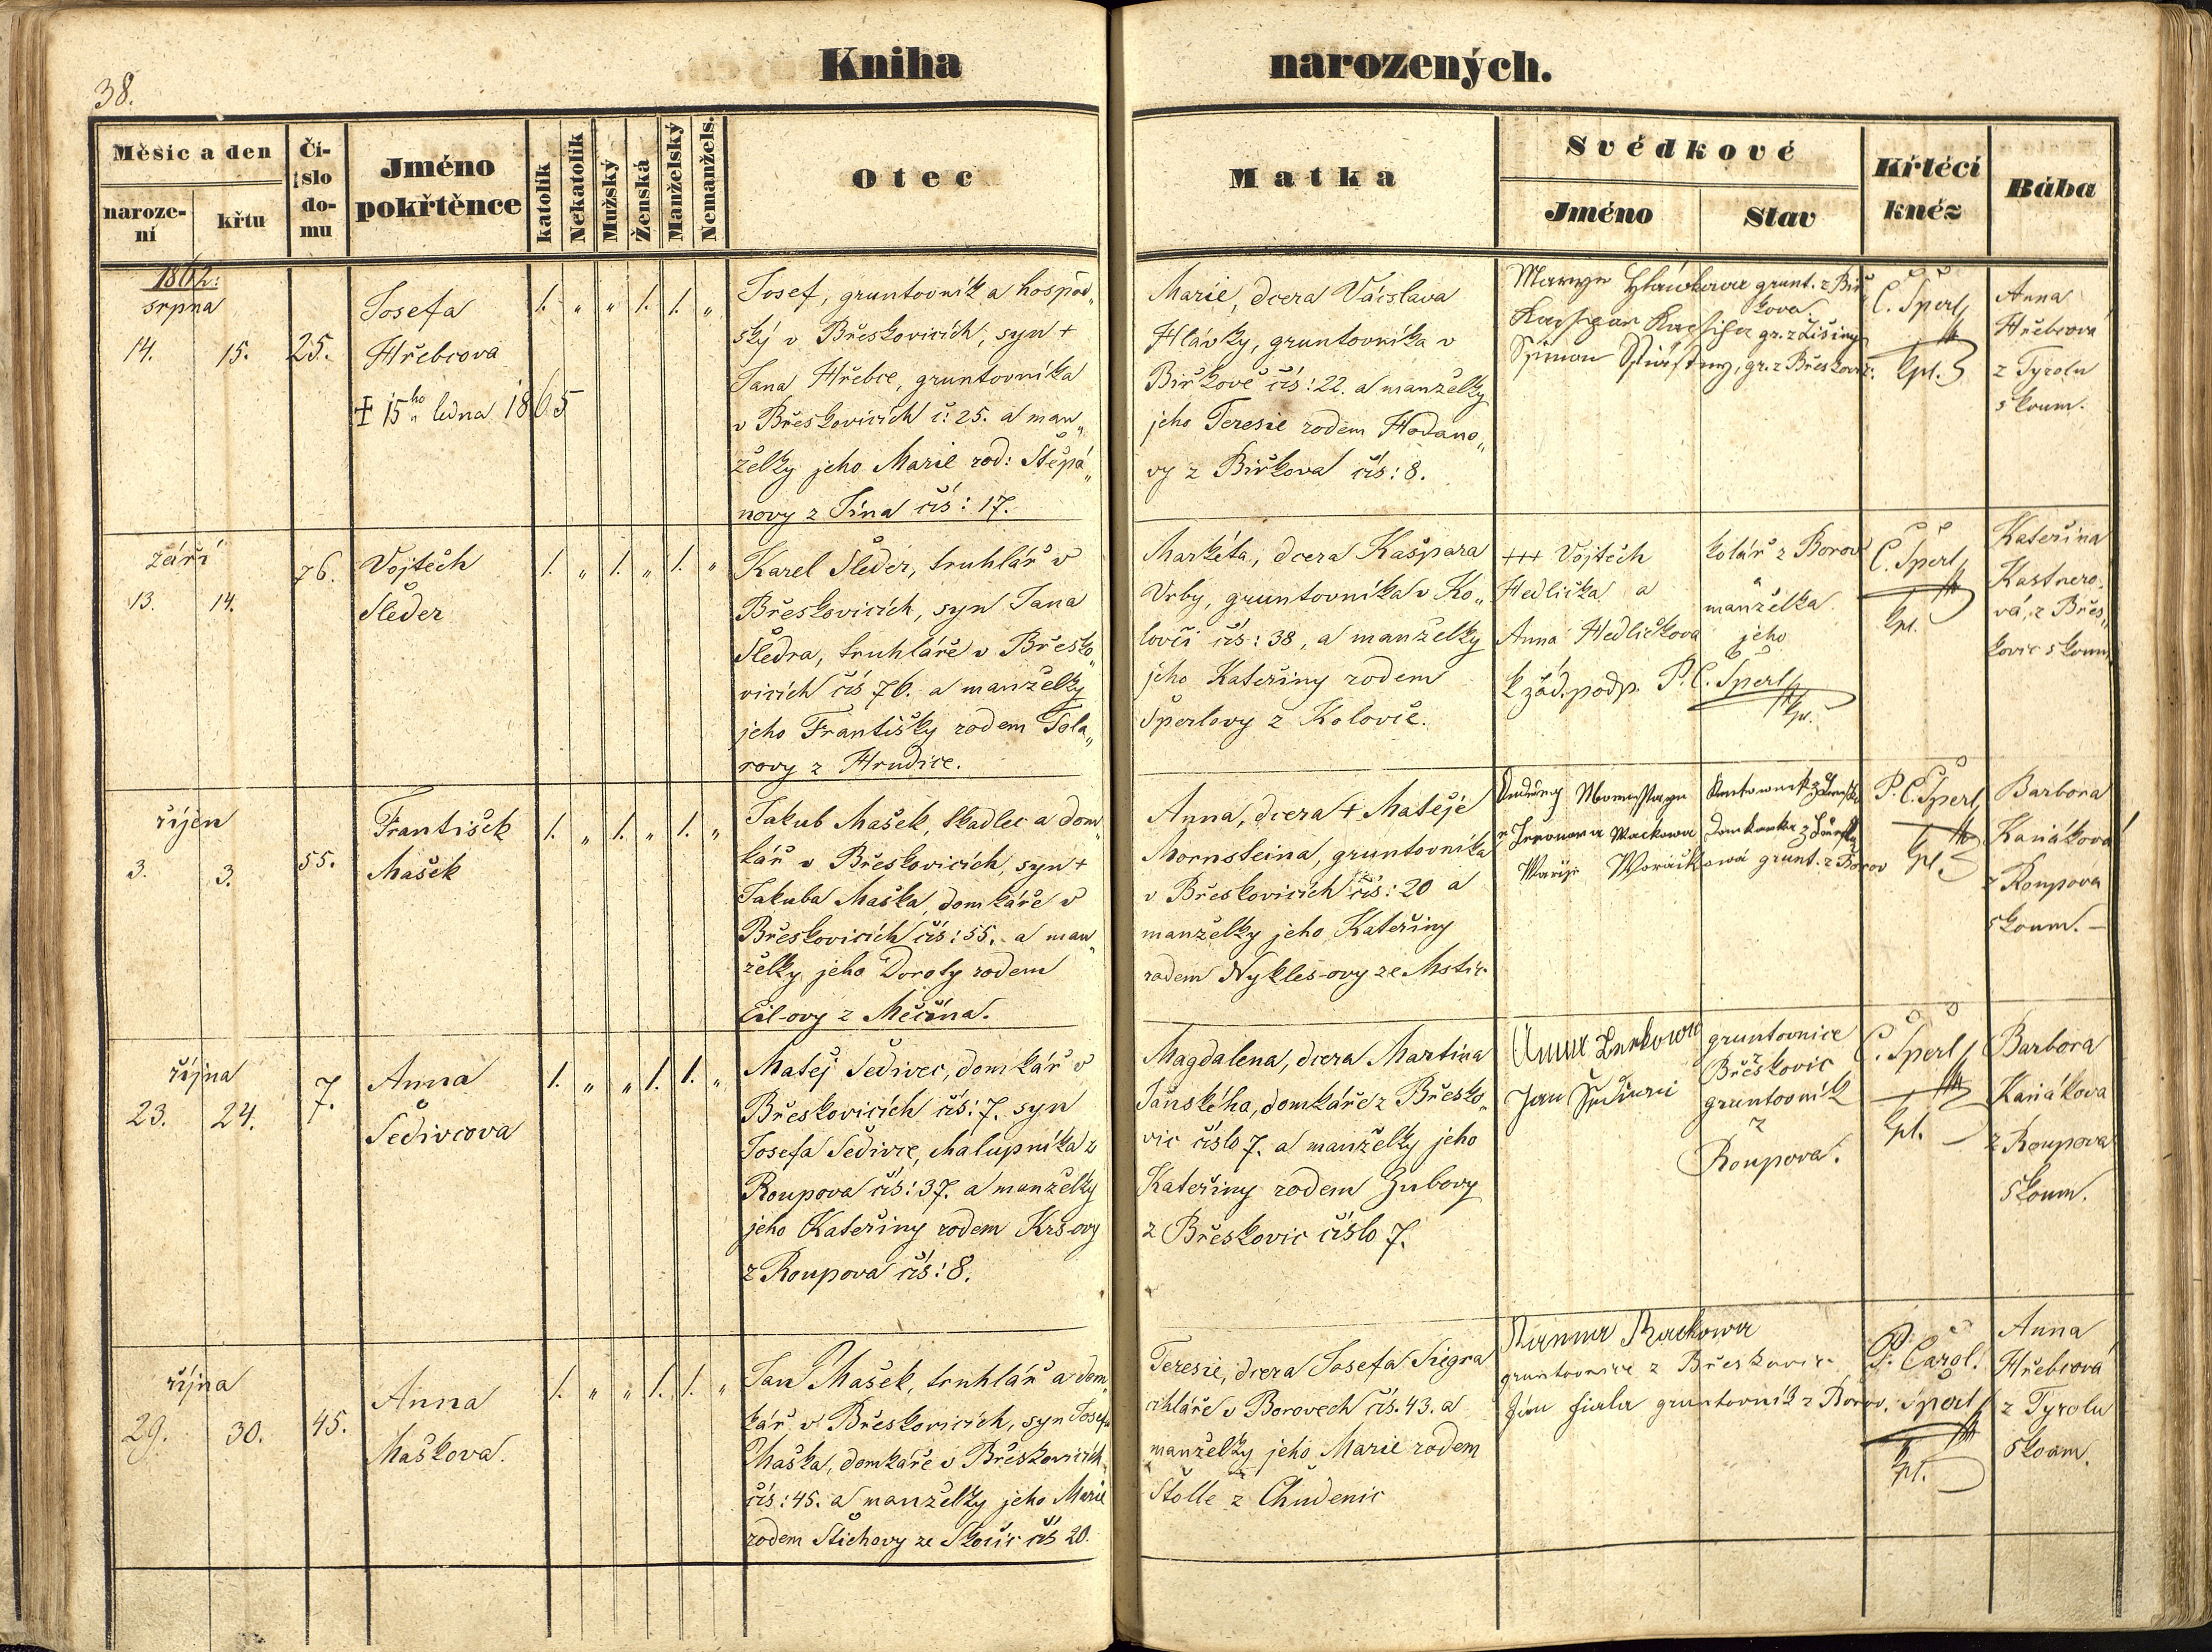 Kniha narozených.
38.
Měsíc a den
naroze-
ní
křtu
Čí-
slo
do-
mu
Jméno
pokřtěnce
katolík
Nekatolík
Mužský
Ženská
Manželský
Nemanžels.
Otec
Matka
Svědkové
Jméno
Stav
Křtécí
kněz
Bába
1862:
srpna
14. 15. 25.
Josefa
Hřebcova
15ho ledna 1865
1. „ „ 1. 1. „
Josef, gruntovník a hospod„
ský v Břeskovicích, syn +
Jana Hřebce, gruntovníka
v Břeskovicích č: 25. a man„
želky jeho Marie rod: Štěpá„
novy z Jína čís: 17.
Marie, dcera Václava
Hlávky, gruntovníka v
Biřkově čís: 22. a manželky
jeho Teresie rodem Hodano„
vy z Biřkova čís: 8.
grunt. z Biř„
kova.
gr. z
gr. z Břeskovic.
C. Šperl
kpl.
Anna
Hřebcová
z Tyrolu
zkoum.
září
13. 14. 76.
Vojtěch
Šleder
1. „ 1. „ 1. „
Karel Šleder, truhlář v
Břeskovicích, syn Jana
Šledra, truhláře v Břesko„
vicích čís 76. a manželky
jeho Františky rodem Tola„
rovy z Hrudice.
Markéta, dcera Kašpara
Vrby, gruntovníka v Ko„
lovči čís: 38, a manželky
jeho Kateřiny rodem
Šperlovy z Kolovče.
+++ Vojtěch
Hedlička a
Anna Hedličkova
k žád. podp. P. C. Šperl
kpl.
kolář z Borov
a
manželka
jeho
C. Šperl
kpl.
Kateřina
Kastnero„
vá, z Břes„
kovic zkoum.
říjen
3. 3. 55.
František
Mašek
1. „ 1. „ 1. „
Jakub Mašek, tkadlec a dom„
kář v Břeskovicích, syn +
Jakuba Maška, domkáře v
Břeskovicích čís: 55. a man„
želky jeho Doroty rodem
Cil-ovy z Měčína.
Anna, dcera + Matěje
Mornsteina, gruntovníka
v Břeskovicích čís: 20 a
manželky jeho Kateřiny
rodem Nykles-ovy ze Mstic
grunt. z Borov
P. C. Šperl
kpl.
Barbora
Kaňáková
z Roupova
zkoum. –
října
23. 24. 7.
Anna
Šedivcova
1. „ „ 1. 1. „
Matěj Šedivec, domkář v
Břeskovicích čís: 7. syn
Josefa Šedivce, chalupníka z
Roupova čís: 37. a manželky
jeho Kateřiny rodem Krs-ovy
z Roupova čís: 8.
Magdalena, dcera Martina
Jánského, domkáře z Břesko„
vic číslo 7. a manželky jeho
Kateřiny rodem Zubovy
z Břeskovic číslo 7.
Jan
gruntovnice
z
Břeskovic
gruntovník
z
Roupova.
C. Šperl
kpl.
Barbora
Kaňákova
z Roupova
zkoum.
října
29. 30. 45.
Anna
Maškova.
1. „ „ 1. 1. „
Jan Mašek, truhlář a dom„
kář v Břeskovicích, syn Josefa
Maška, domkáře v Břeskovicích
čís: 45. a manželky jeho Marie
rodem Štichovy ze Skočic čís 20.
Teresie, dcera Josefa
cihláře v Borovech čís. 43. a
manželky jeho Marie rodem
Štolle z Chudenic
gruntovnice z Břeskovic
Jan Fiala gruntovník z Borov.
P. Carol.
Šperl
kpl.
Anna
Hřebcová
z Tyrolu
zkoum.